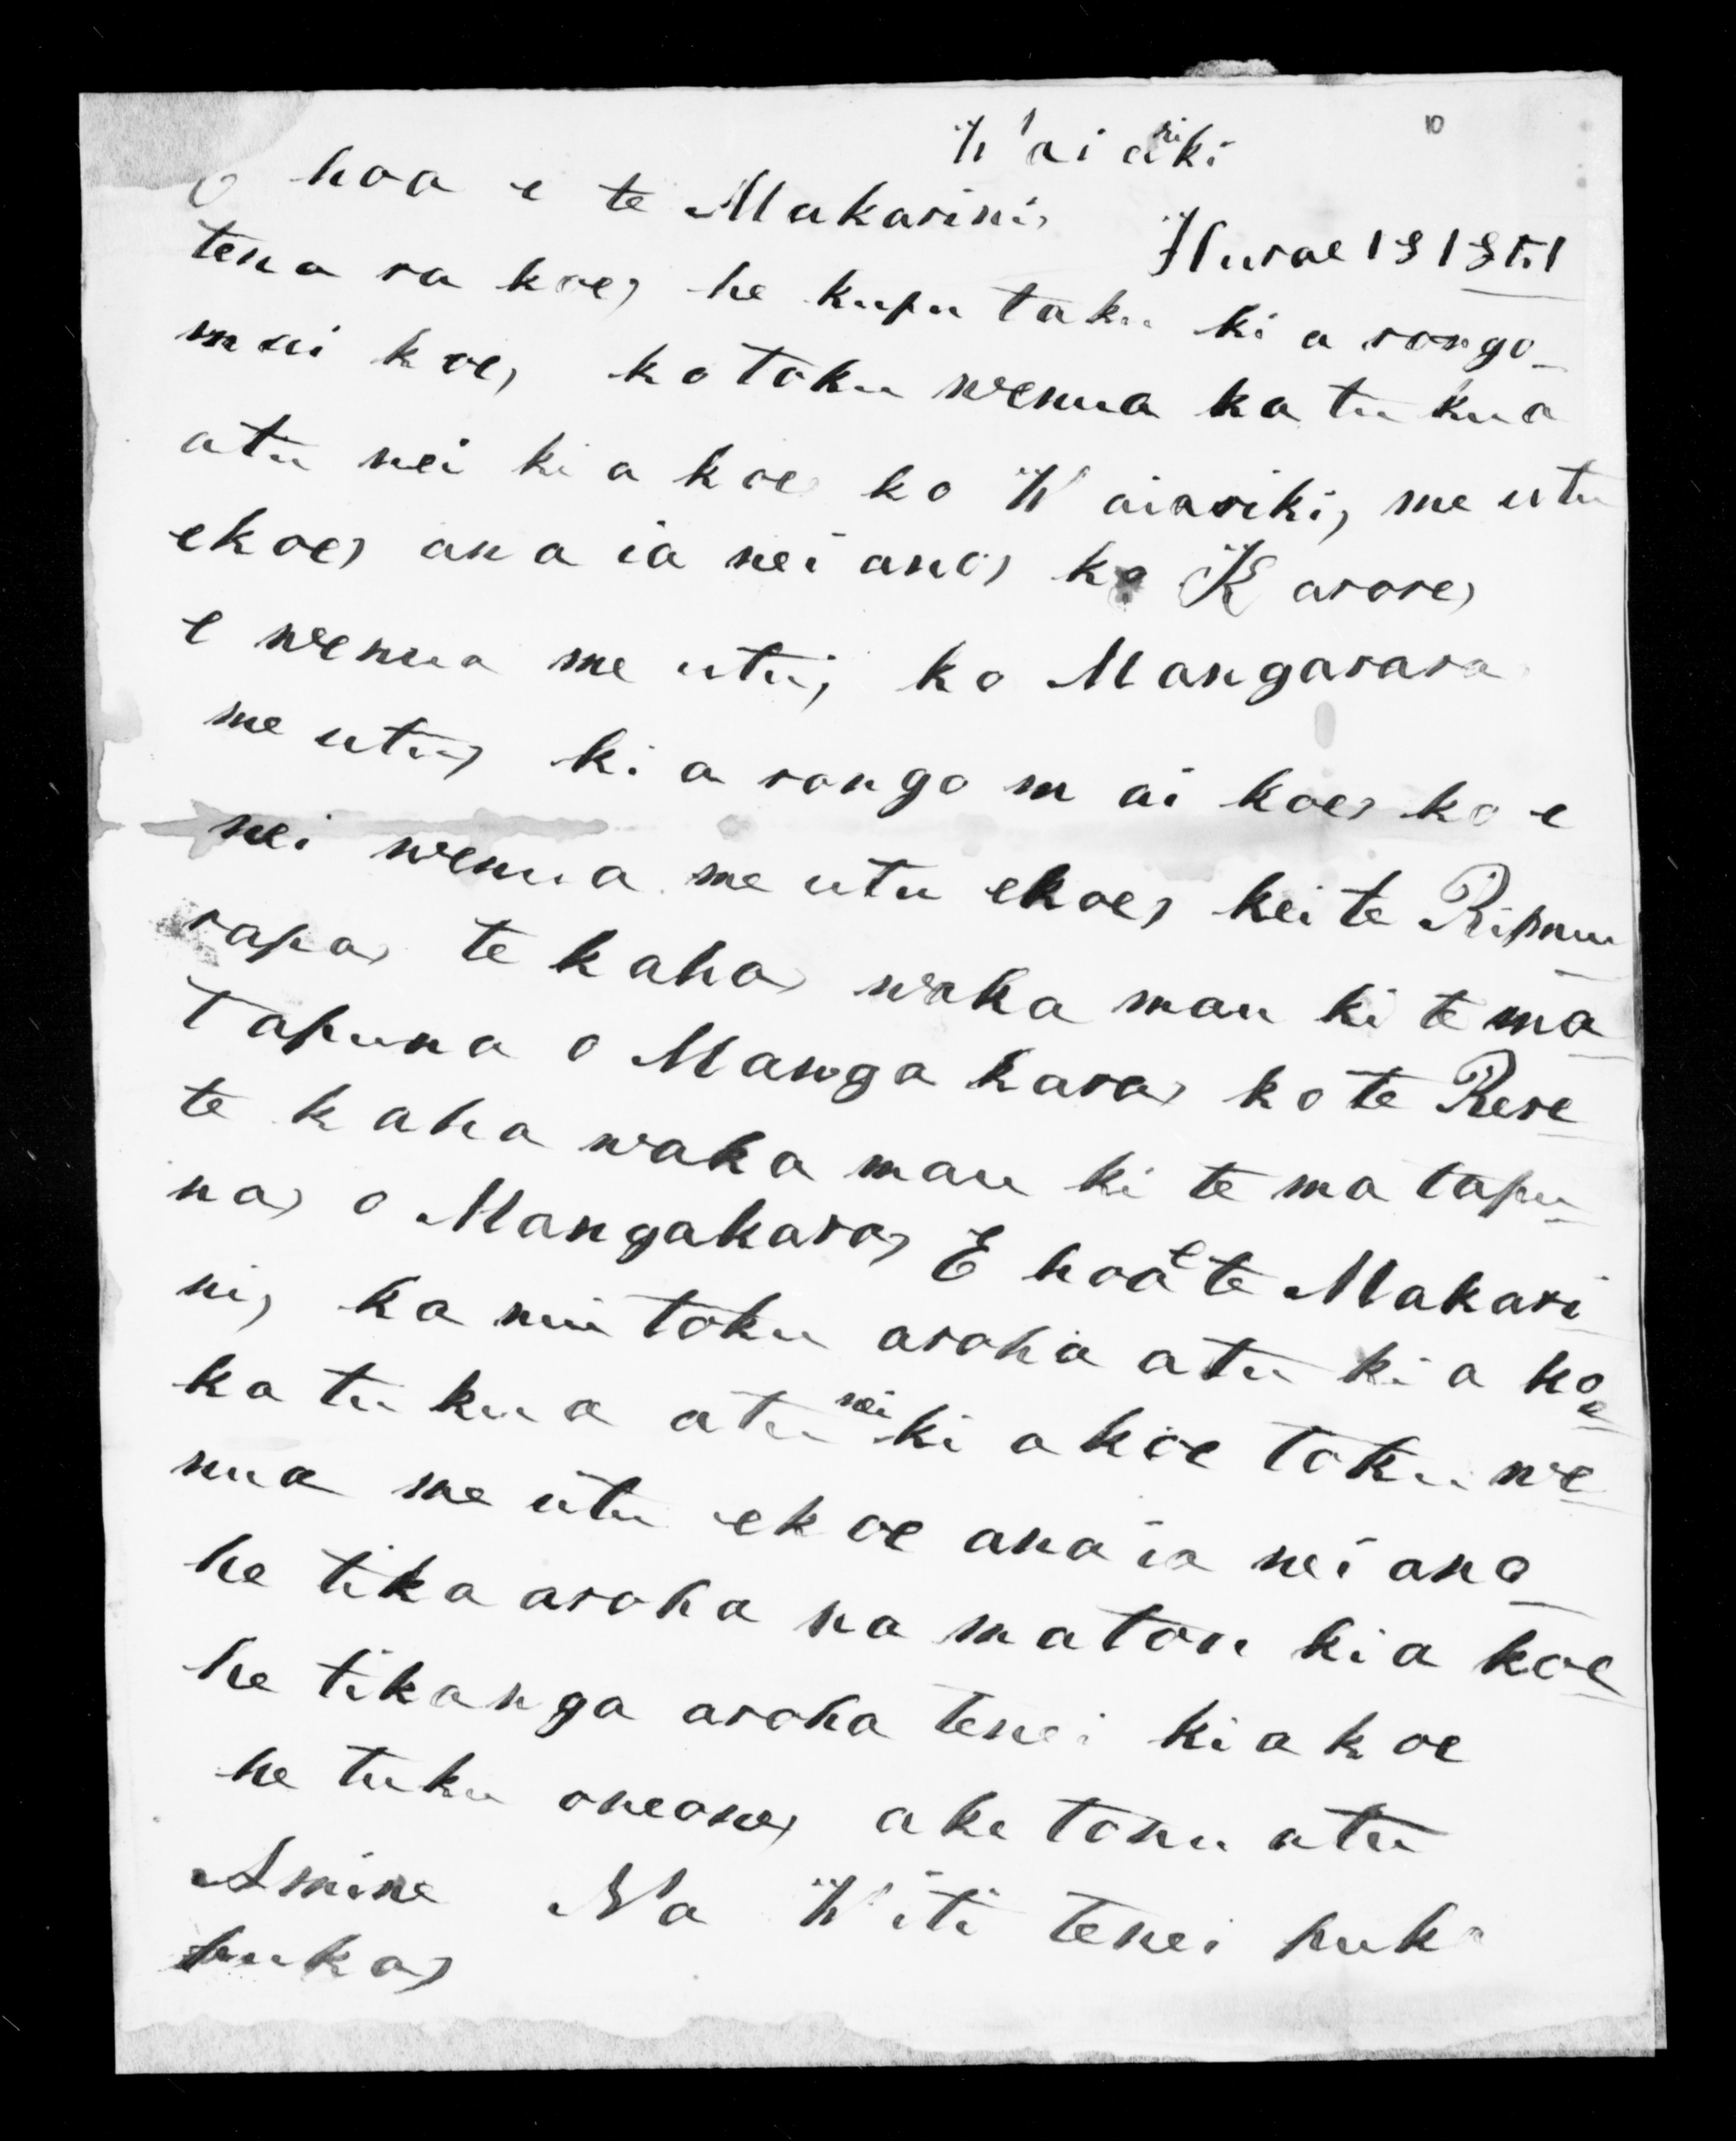 10
Waiariki
E hoa e te Makarini,
Hurae 18 1851
tena ra koe, he kupu taku kia rongo
mai koe, ko toku wenua ka tukua
atu nei ki a koe ko Waiariki, me utu
ekoe, ana ia nei ano, ko Karore,
e wenua me utu, ko Mangarara
me utu, kia rongo mai koe, ko e
nei wenua me utu ekoe, kei te
rapa, te kaha, waka mau ki te ma
tapuna o Mangakara, ko te Rere
te kaha waka mau ki te matapu
na, o Mangakara, E hoa e te Makari
ni, ka nui toku aroha atu ki a koe
ka tukua atu nei ki a koe toku we
nua me utu ekoe ana ia nei ano
he tika aroha na matou kia koe
he tikanga aroha tenei kia koe
he tuku oneone, ake tonu atu
Amine Na Witi tenei puka
puka,